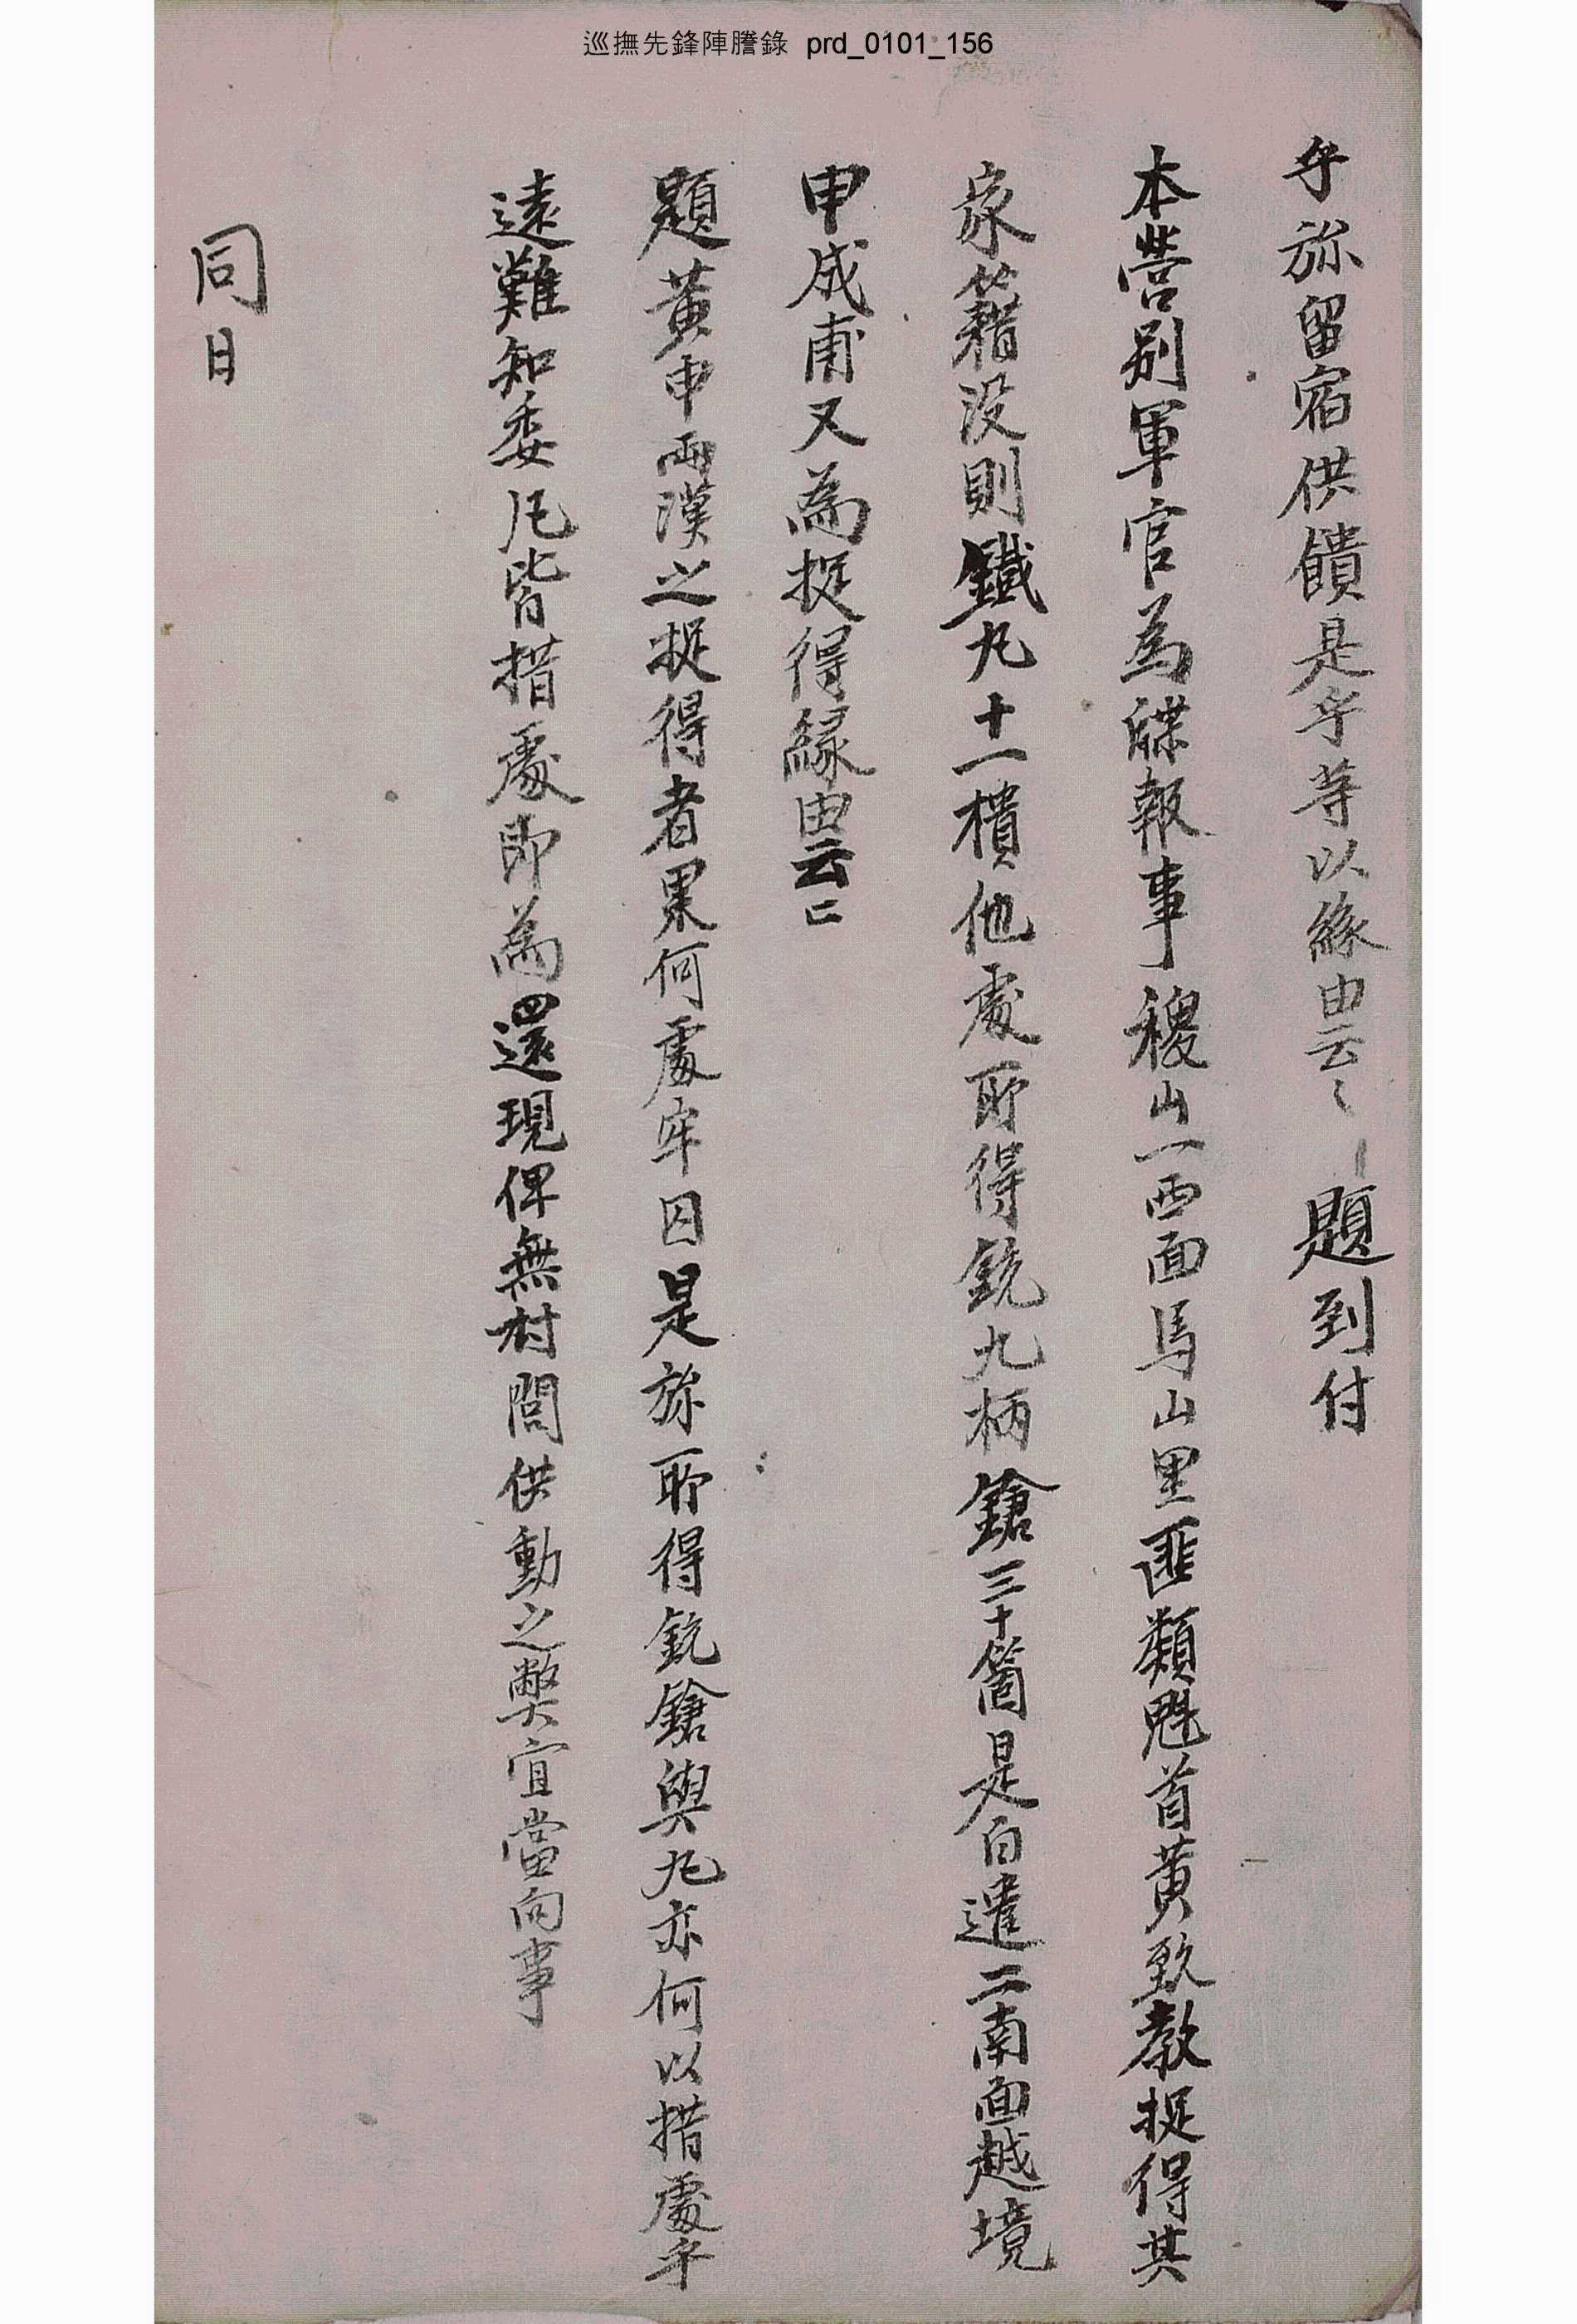 巡撫先鋒陣謄錄 prd_0101_156
乎旀留宿供饋是乎等以緣由云〻 題到付
本營別軍官爲牒報事稷山一西面馬山里匪類魁首黃致敎捉得其
家籍沒則鐵丸十一樻他處所得銃九柄鎗三十箇是白遣二南面越境
申成甫又爲捉得緣由云〻
題黃申兩漢之捉得者果何處牢囚是旀所得銃鎗與丸亦何以措處乎
遠難知委凡皆措處卽爲還現俾無村閭供動之弊宜當向事
同日